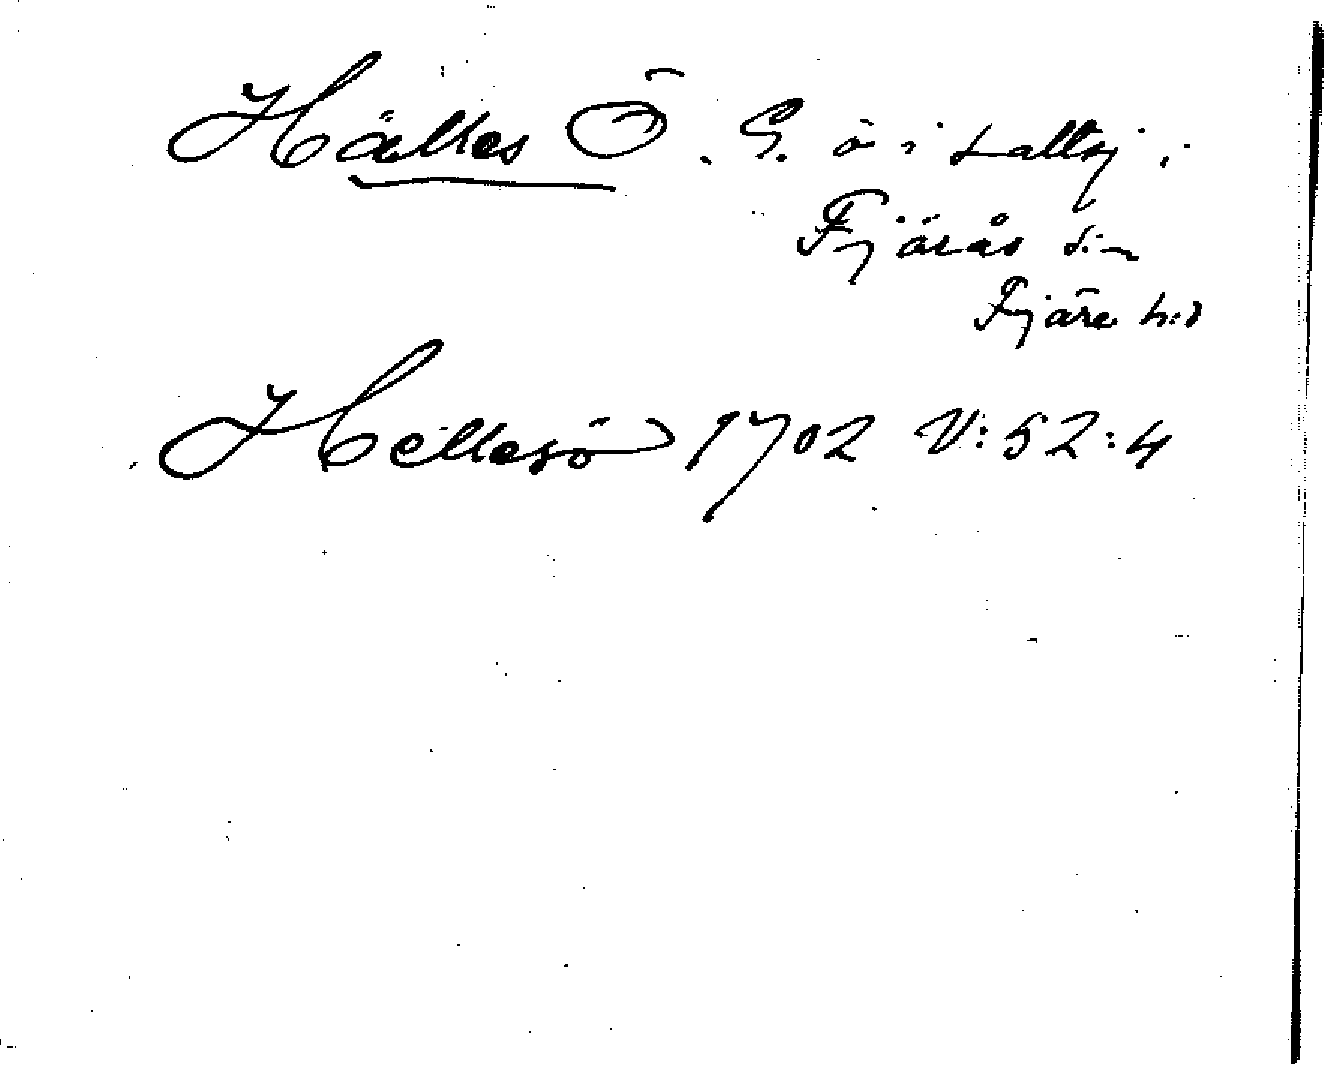 Hälles Ö. G. ö i saltsj.
Fjärås s:n
Fjäre h:d
Hellesjö 1702 V:52:4